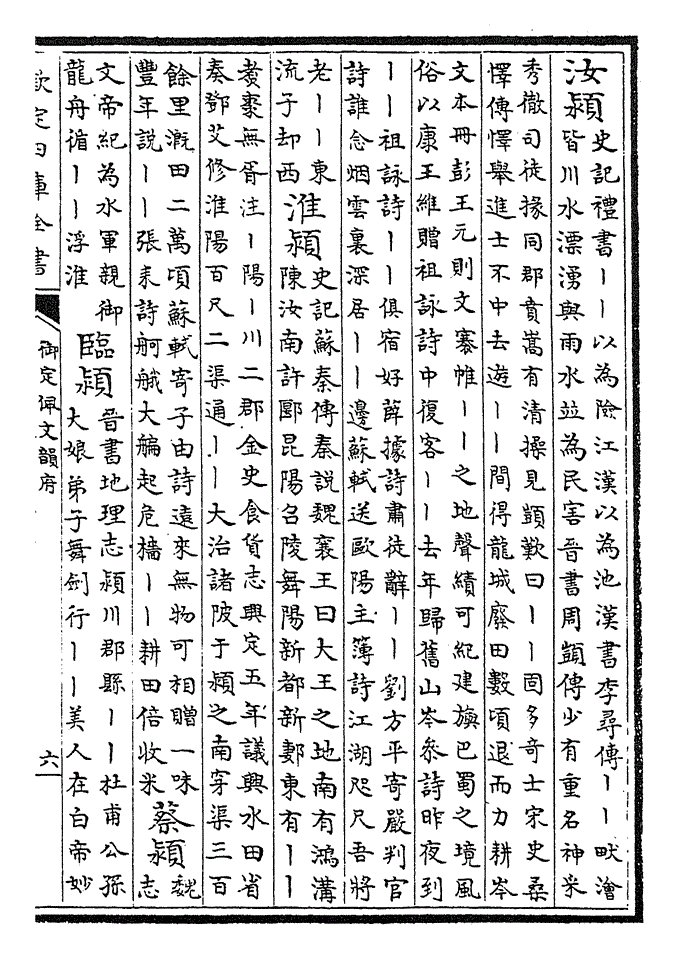 汝潁
史記禮書丨丨以為險江漢以為池漢書李尋傳丨丨畎澮
皆川水漂湧與雨水竝為民害晉書周顗傳少有重名神采
秀徹司徒掾同郡賁嵩有清操見顗歎曰丨丨固多奇士宋史桑
懌傳懌舉進士不中去遊丨丨間得龍城廢田數頃退而力耕岑
文本冊彭王元則文褰帷丨丨之地聲績可紀建旟巴蜀之境風
俗以康王維贈祖詠詩中復客丨丨去年歸舊山岑參詩昨夜到
丨丨祖詠詩丨丨俱宿好薛據詩肅徒辭丨丨劉方平寄嚴判官
詩誰念烟雲裏深居丨丨邊蘇軾送歐陽主簿詩江湖咫尺吾將
老丨丨東
流子却西
淮潁
史記蘇秦傳秦說魏襄王曰大王之地南有鴻溝
陳汝南許郾昆陽召陵舞陽新都新郪東有丨丨
煑棗無胥注丨陽丨川二郡金史食貨志興定五年議興水田省
奏鄧艾修淮陽百尺二渠通丨丨大治諸陂于潁之南穿渠三百
餘里溉田二萬頃蘇軾寄子由詩遠來無物可相贈一味
豐年說丨丨張耒詩舸大艑起危檣丨丨耕田倍收米
蔡潁
魏
志
文帝紀為水軍親御
龍舟循丨丨浮淮
臨潁
晉書地理志潁川郡縣丨丨杜甫公孫
大娘弟子舞劍行丨丨美人在白帝妙
欽定四庫全書
御定佩文韻府
六